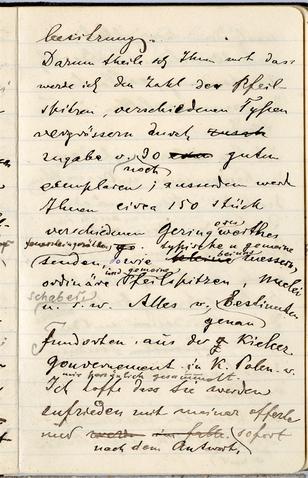 besitzung.
Darum theile ich Ihnen mit dass
werde ich den Zahl der Pfeil-
spitzen, verschiedenen Typen
vergrössern durch
zugabe v. 30 guten
(noch)
exemplaren; ausserdem werde
Ihnen circa 150 stück
verschiedenen Geringwerthes
oder
typische u gemeine
senden, so wie kleine messern,
und gemeine
ordinäre Pfeilspitzen, nuclei
schabern
u. s. w. Alles v. bestimmten
genau
Fundorten aus der Kielcer
gouvernement in K. Polen. v.
mir persönlich gesammelt.
Ich hoffe dass Sie werden
zufrieden mit meiner offerte
und (sofort
nach dem Antwort,